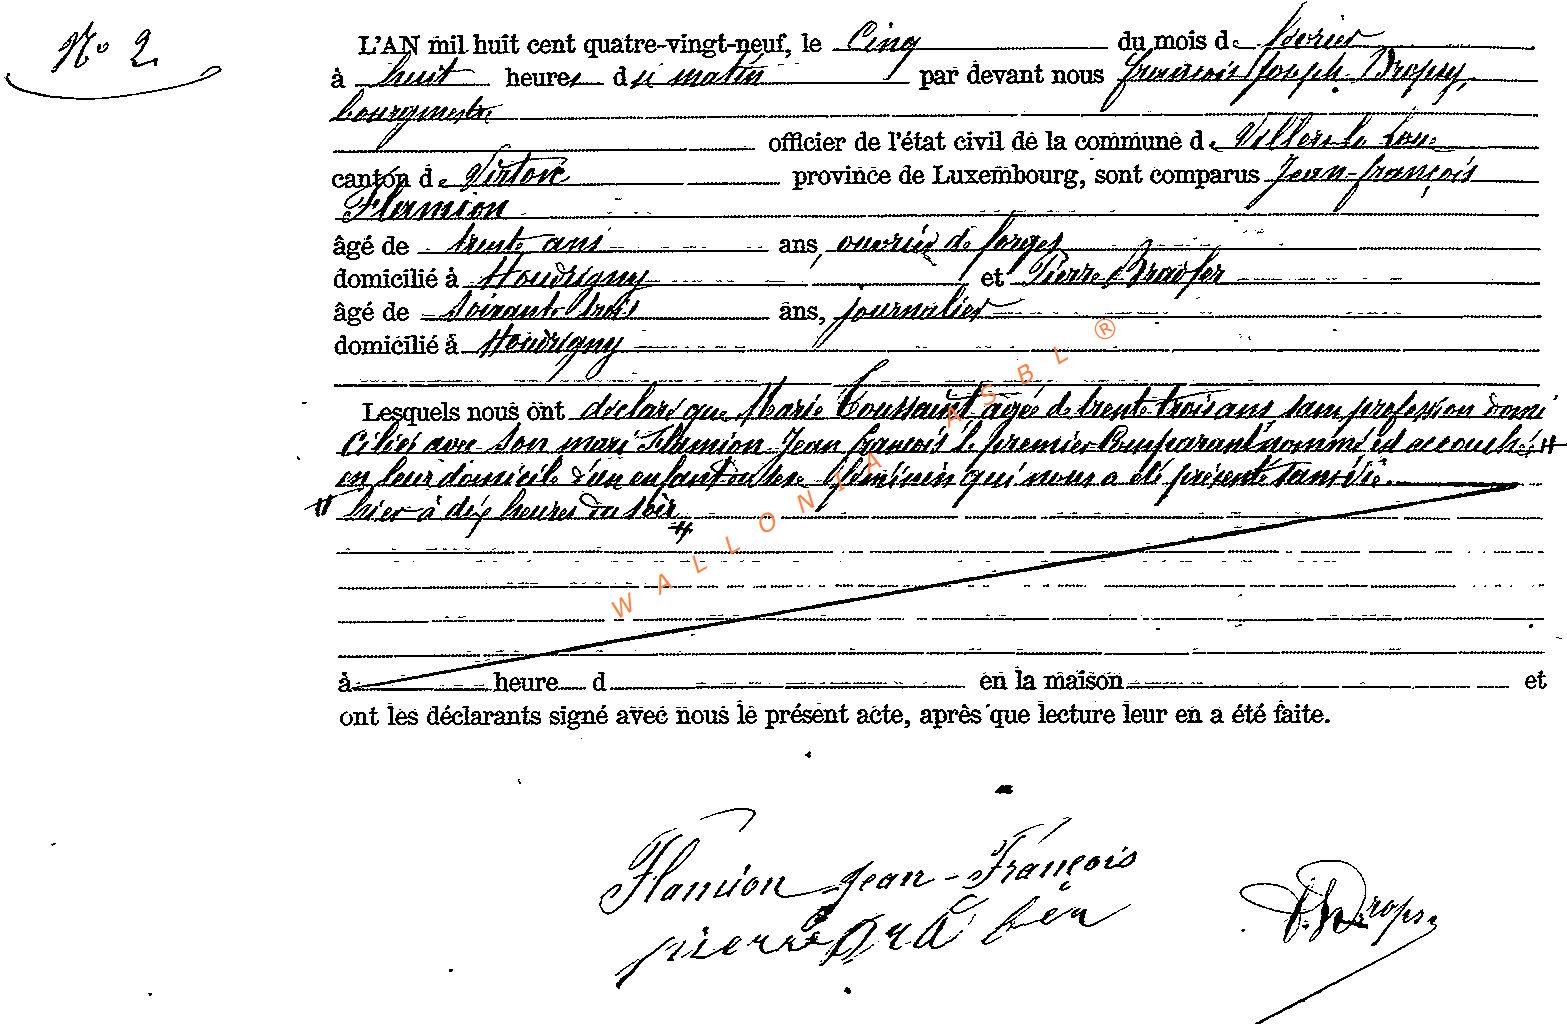 N° 2
L'AN mil huit cent quatre-vingt-neuf, le Cinq du mois de février
à huit heures du matin par devant nous François Joseph Dropsy,
bourgmestre
officier de l'état civil de la commune de Villers la Loue
canton de Virton province de Luxembourg, sont comparus Jean-François
Flamion
âgé de trente ans ans, ouvrier de forges
domicilié à Houdrigny et Pierre
âgé de soixante trois ans, journalier
domicilié à Houdrigny
Lesquels nous ont déclaré que Marie Toussaint agée de trente trois ans sans profession domi
ciliée avec son mari Flamion Jean François le premier comparant nommé est accouchée #
en leur domicile d'un enfant du sexe féminin qui nous a été présenté
# hier à dix heures du soir #
à heure d en la maison et
ont les déclarants signé avec nous le présent acte, après que lecture leur en a été faite.
Flamion Jean-François
pierre
Dropsy
WALLONIA ASBL ®